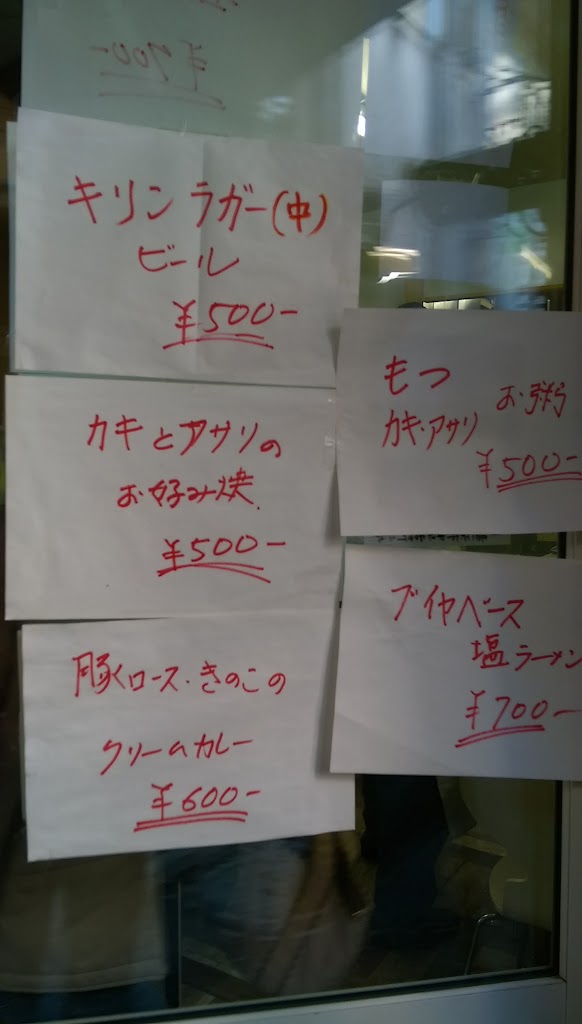 キリンラガー(中)
ビール
¥500-
カキとアサリの
お好み焼
¥500-
豚ロース・きのこの
クリームカレー
¥600-
もつ
カキ・アサリ お粥
¥500-
ブイヤベース
塩ラーメン
¥700-
¥700-